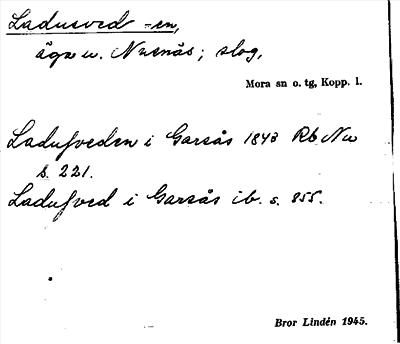 Ladusved =en,
äga u. Nusnäs; slog,
Mora sn o. tg, Kopp. l.
Ladufveden i Garsås 1843 Rb Nu
s. 221.
Ladufved i Garsås ib. s. 855.
Bror Lindén 1945.